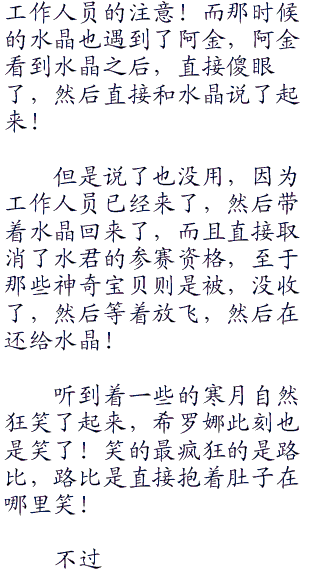 工作人员的注意！而那时候
的水晶也遇到了阿金，阿金
看到水晶之后，直接傻眼
了，然后直接和水晶说了起
来！
但是说了也没用，因为
工作人员已经来了，然后带
着水晶回来了，而且直接取
消了水君的参赛资格，至于
那些神奇宝贝则是被，没收
了，然后等着放飞，然后在
还给水晶！
听到着一些的寒月自然
狂笑了起来，希罗娜此刻也
是笑了！笑的最疯狂的是路
比，路比是直接抱着肚子在
哪里笑！
不过